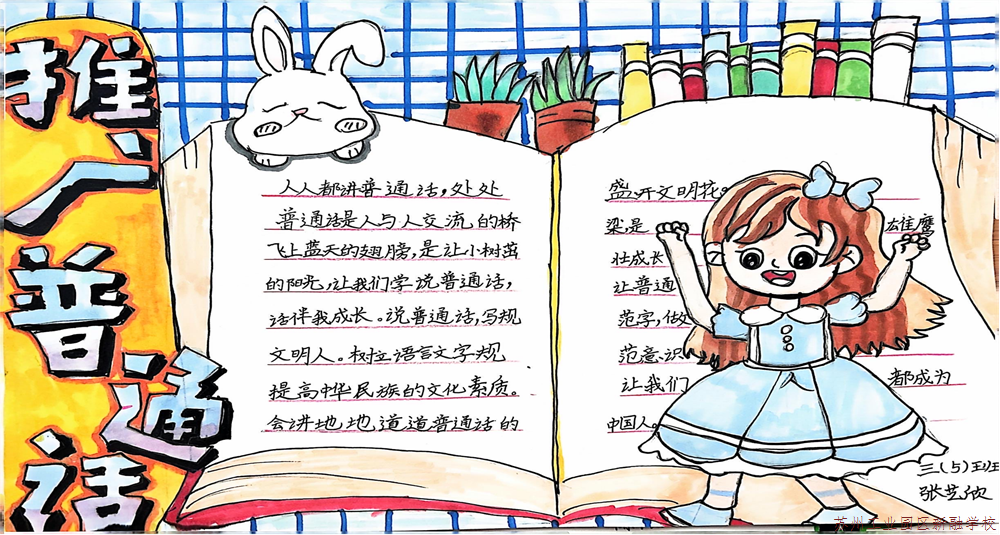 推广普通话
人人都讲普通话,处处 盛开文明花。
普通话是人与人交流的桥 梁,是 雄鹰
飞上蓝天的翅膀,是让小树茁 壮成长
的阳光,让我们学说普通话, 让普通
话伴我成长。说普通话,写规 范字,做
文明人。树立语言文字规 范意识
提高中华民族的文化素质。 让我们 都成为
会讲地地道道普通话的 中国人。
三(5)班
张
苏州工业园区新融学校